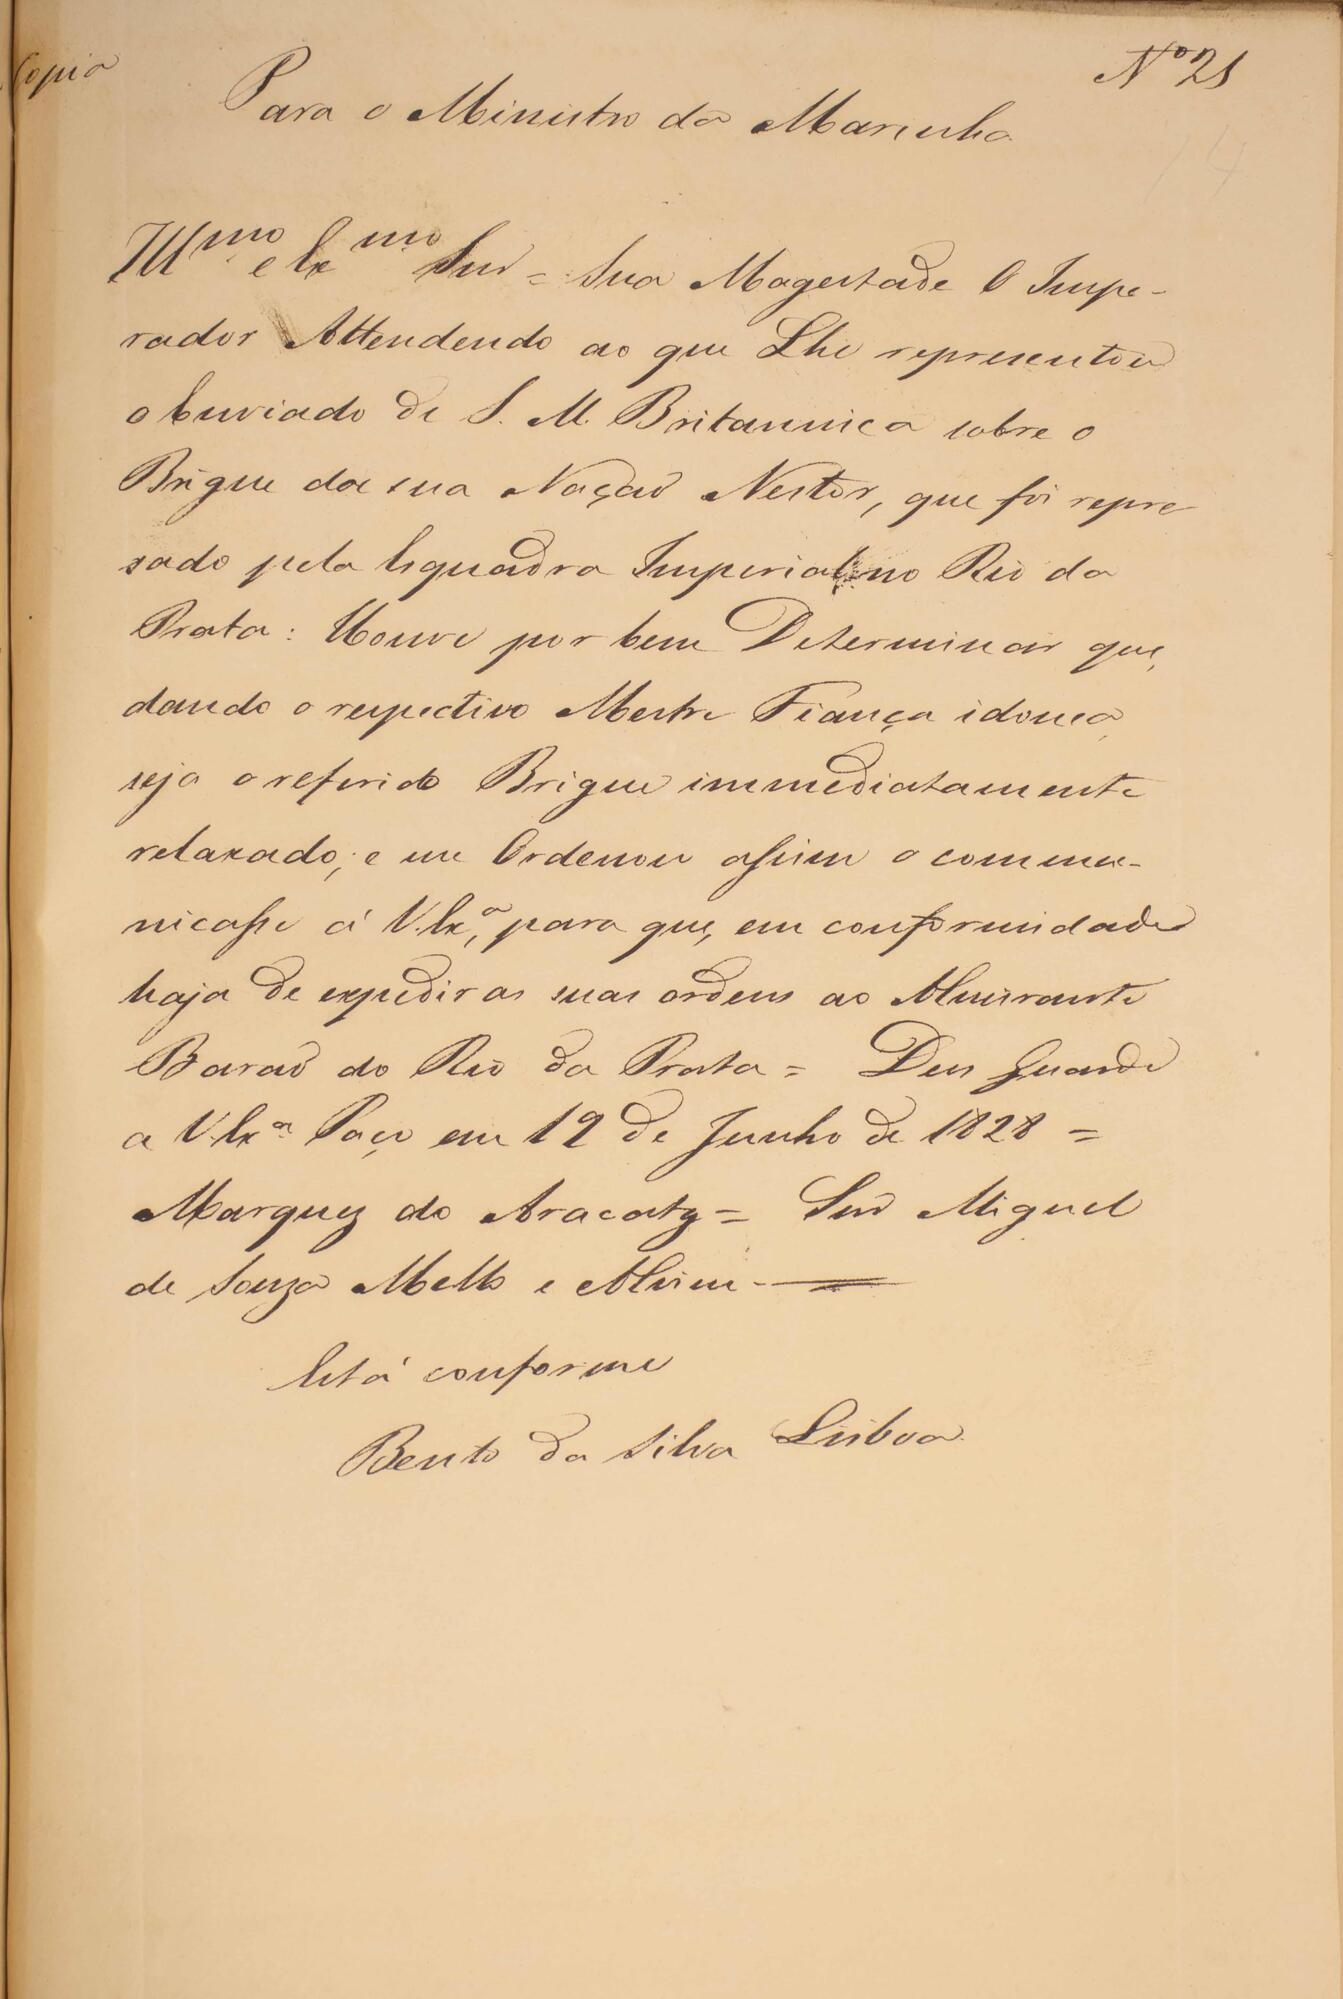 Copia
Nº 21
14
Para o Ministro da Marinha
Illmo e Exmo Snr = Sua Magestade O Impe-
rador Attendendo ao que Lhe representou
o Enviado de S. M. Britannica sobre o
Brigue da sua Nação Nestor, que foi repre
sado pela Esquadra Imperial no Rio da
Prata: Houve por bem Determinar que,
dando o respectivo Mestre Fiança idonea,
seja o referido Brigue immediatamente
relaxado; e me Ordenou assim o commu-
nicasse á V. Exª, para que, em conformidade
haja de expedir as suas ordens ao Almirante
Barão do Rio da Prata = Deus Guarde
a V. Exª Paço em 12 de Junho de 1828 =
Marquez do Aracaty = Snr Miguel
de Souza Mello e Alvim
Está conforme
Bento da Silva Lisboa